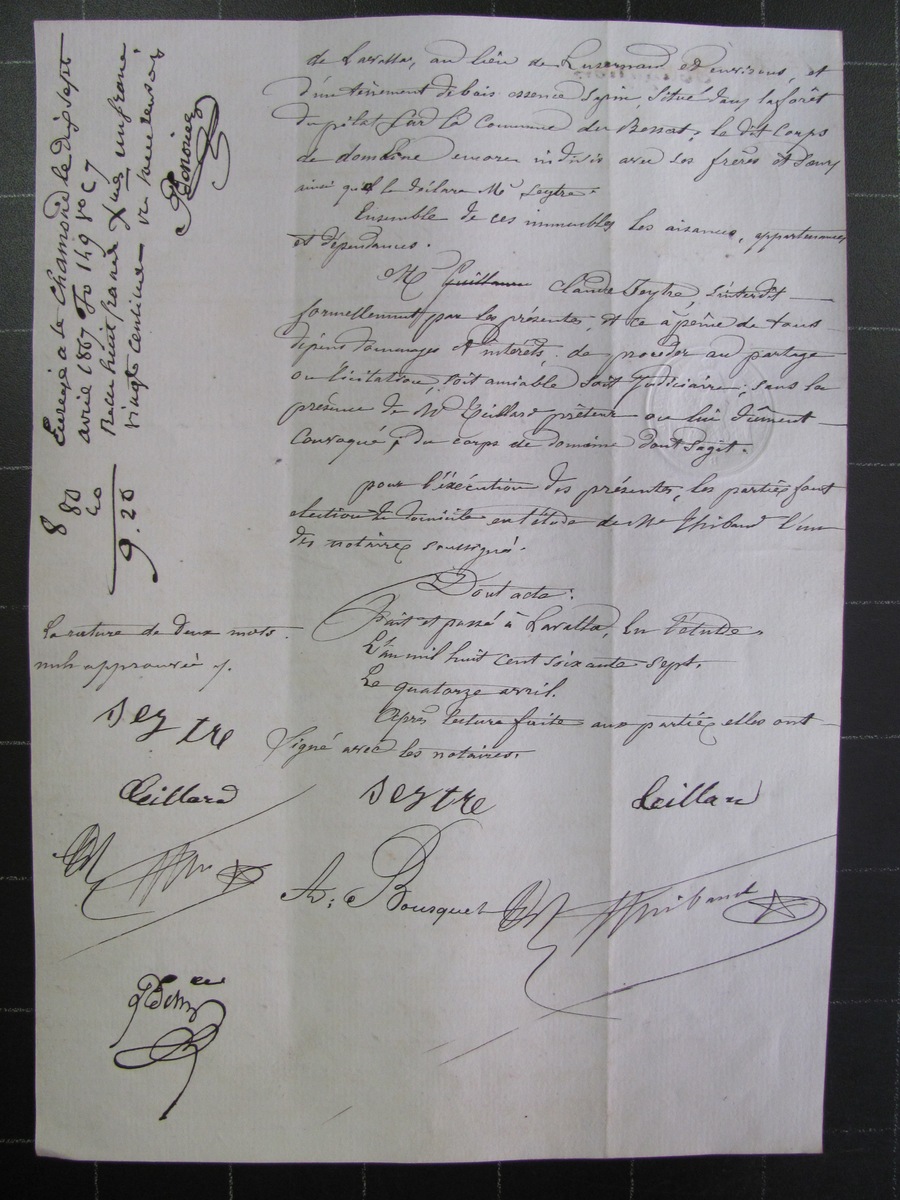 de Lavalla, au lieu de Luzernaud et environs, et
d'un tènement de bois essence sapin, situé dans la forêt
du pilat sur la Commune du Bessat, le dit corps
de domaine encore indivis avec ses frères et sœurs
ainsi que le déclare Mr Seytre.
Ensemble de ces immeubles les aisances, appartenances
et dépendances.
Mr Guillaume Claude Seytre, s'interdit
formellement par les présentes, et ce à peine de tous
dépens dommages et intérêts, de procéder au partage
ou licitation, soit amiable soit judiciaire, sans la
présence de Mr Teillard prêteur ou lui dûment
Convoqué, du corps de domaine dont s'agit.
pour l'exécution des présentes, les parties font
élection de domicile en l'étude de Me Thibaud l'un
des notaires soussigné.
Dont acte.
Fait et passé à Lavalla, En l'étude,
L'an mil huit cent soixante sept,
Le quatorze avril.
Après lecture faite aux parties elles ont
signé avec les notaires.
Seytre
Teillard
A. Bousquet
Thibaud
Enregé à St Chamond le dix sept
avril 1867 fo 149 Vo C 7
Reçu huit francs
vingt centimes
8 80
9.20
La rature de deux mots
nuls approuvée
Seytre
Teillard